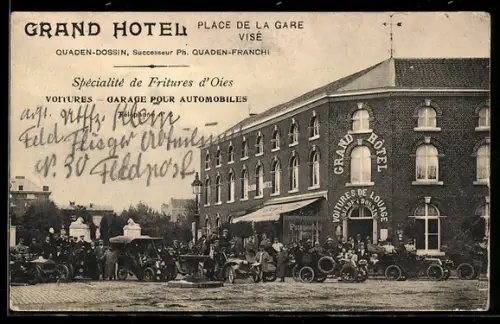 GRAND HOTEL PLACE DE LA GARE
VISÉ
QUADEN-DOSSIN, Successeur Ph. QUADEN-FRANCHI
Spécialité de Fritures d'Oies
VOITURES — GARAGE POUR AUTOMOBILES
Téléphone
Feld Flieger Abteilung
N. 30 Feldpost
GRAND HOTEL
VOITURES DE LOUAGE